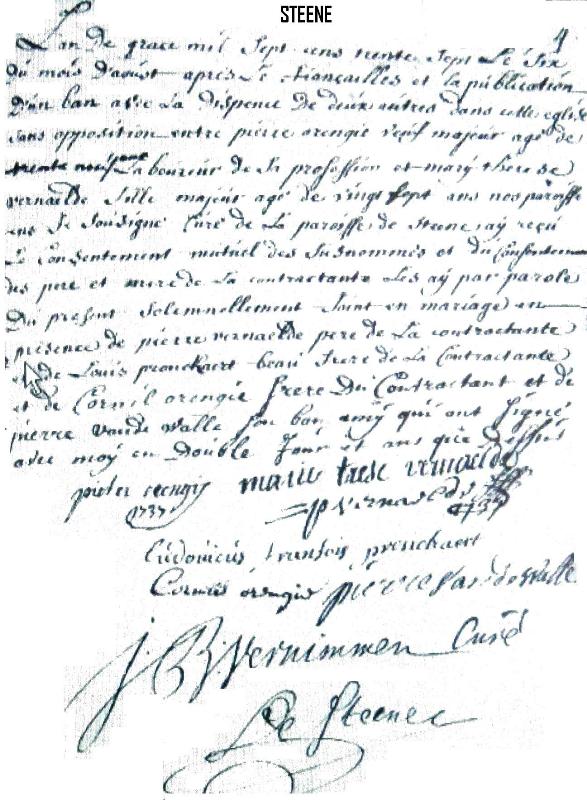 STEENE
4
L'an De grace mil Sept cens trente Sept Le Six
Du mois D'aoust apres Le fiançailles et la publication
D'un ban avec La dispence De deux autres dans cette eglise
sans opposition entre pierre orengie veuf majeur agé de
trente neuf ans Laboureur de Sa profession et mary therese
vernaelde fille majeur agé de vingt sept ans nos paroissiens
Je Soussigné Curé de La paroisse de Steene aÿ reçu
Le Consentement mutuel des Susnommés et du Consentement
des pere et mere de La contractante Les aÿ par parole
Du present Solemnellement Joint en mariage en
presence de pierre vernaelde pere de La contractante
et de Louis pronckaert beau frere de La Contractante
et de Cornil orengie frere Du Contractant et de
pierre vande Walle son ban amÿ qui ont Signé
avec moÿ en Double Jour et ans que Dessus
pieter orengie marie trese vernaelde
1737 P vernaelde
1737
Ludovicus fransois pronckaert
Cornil orengie pierre Vandewalle
J. B. Vernimmen Curé
De Steene